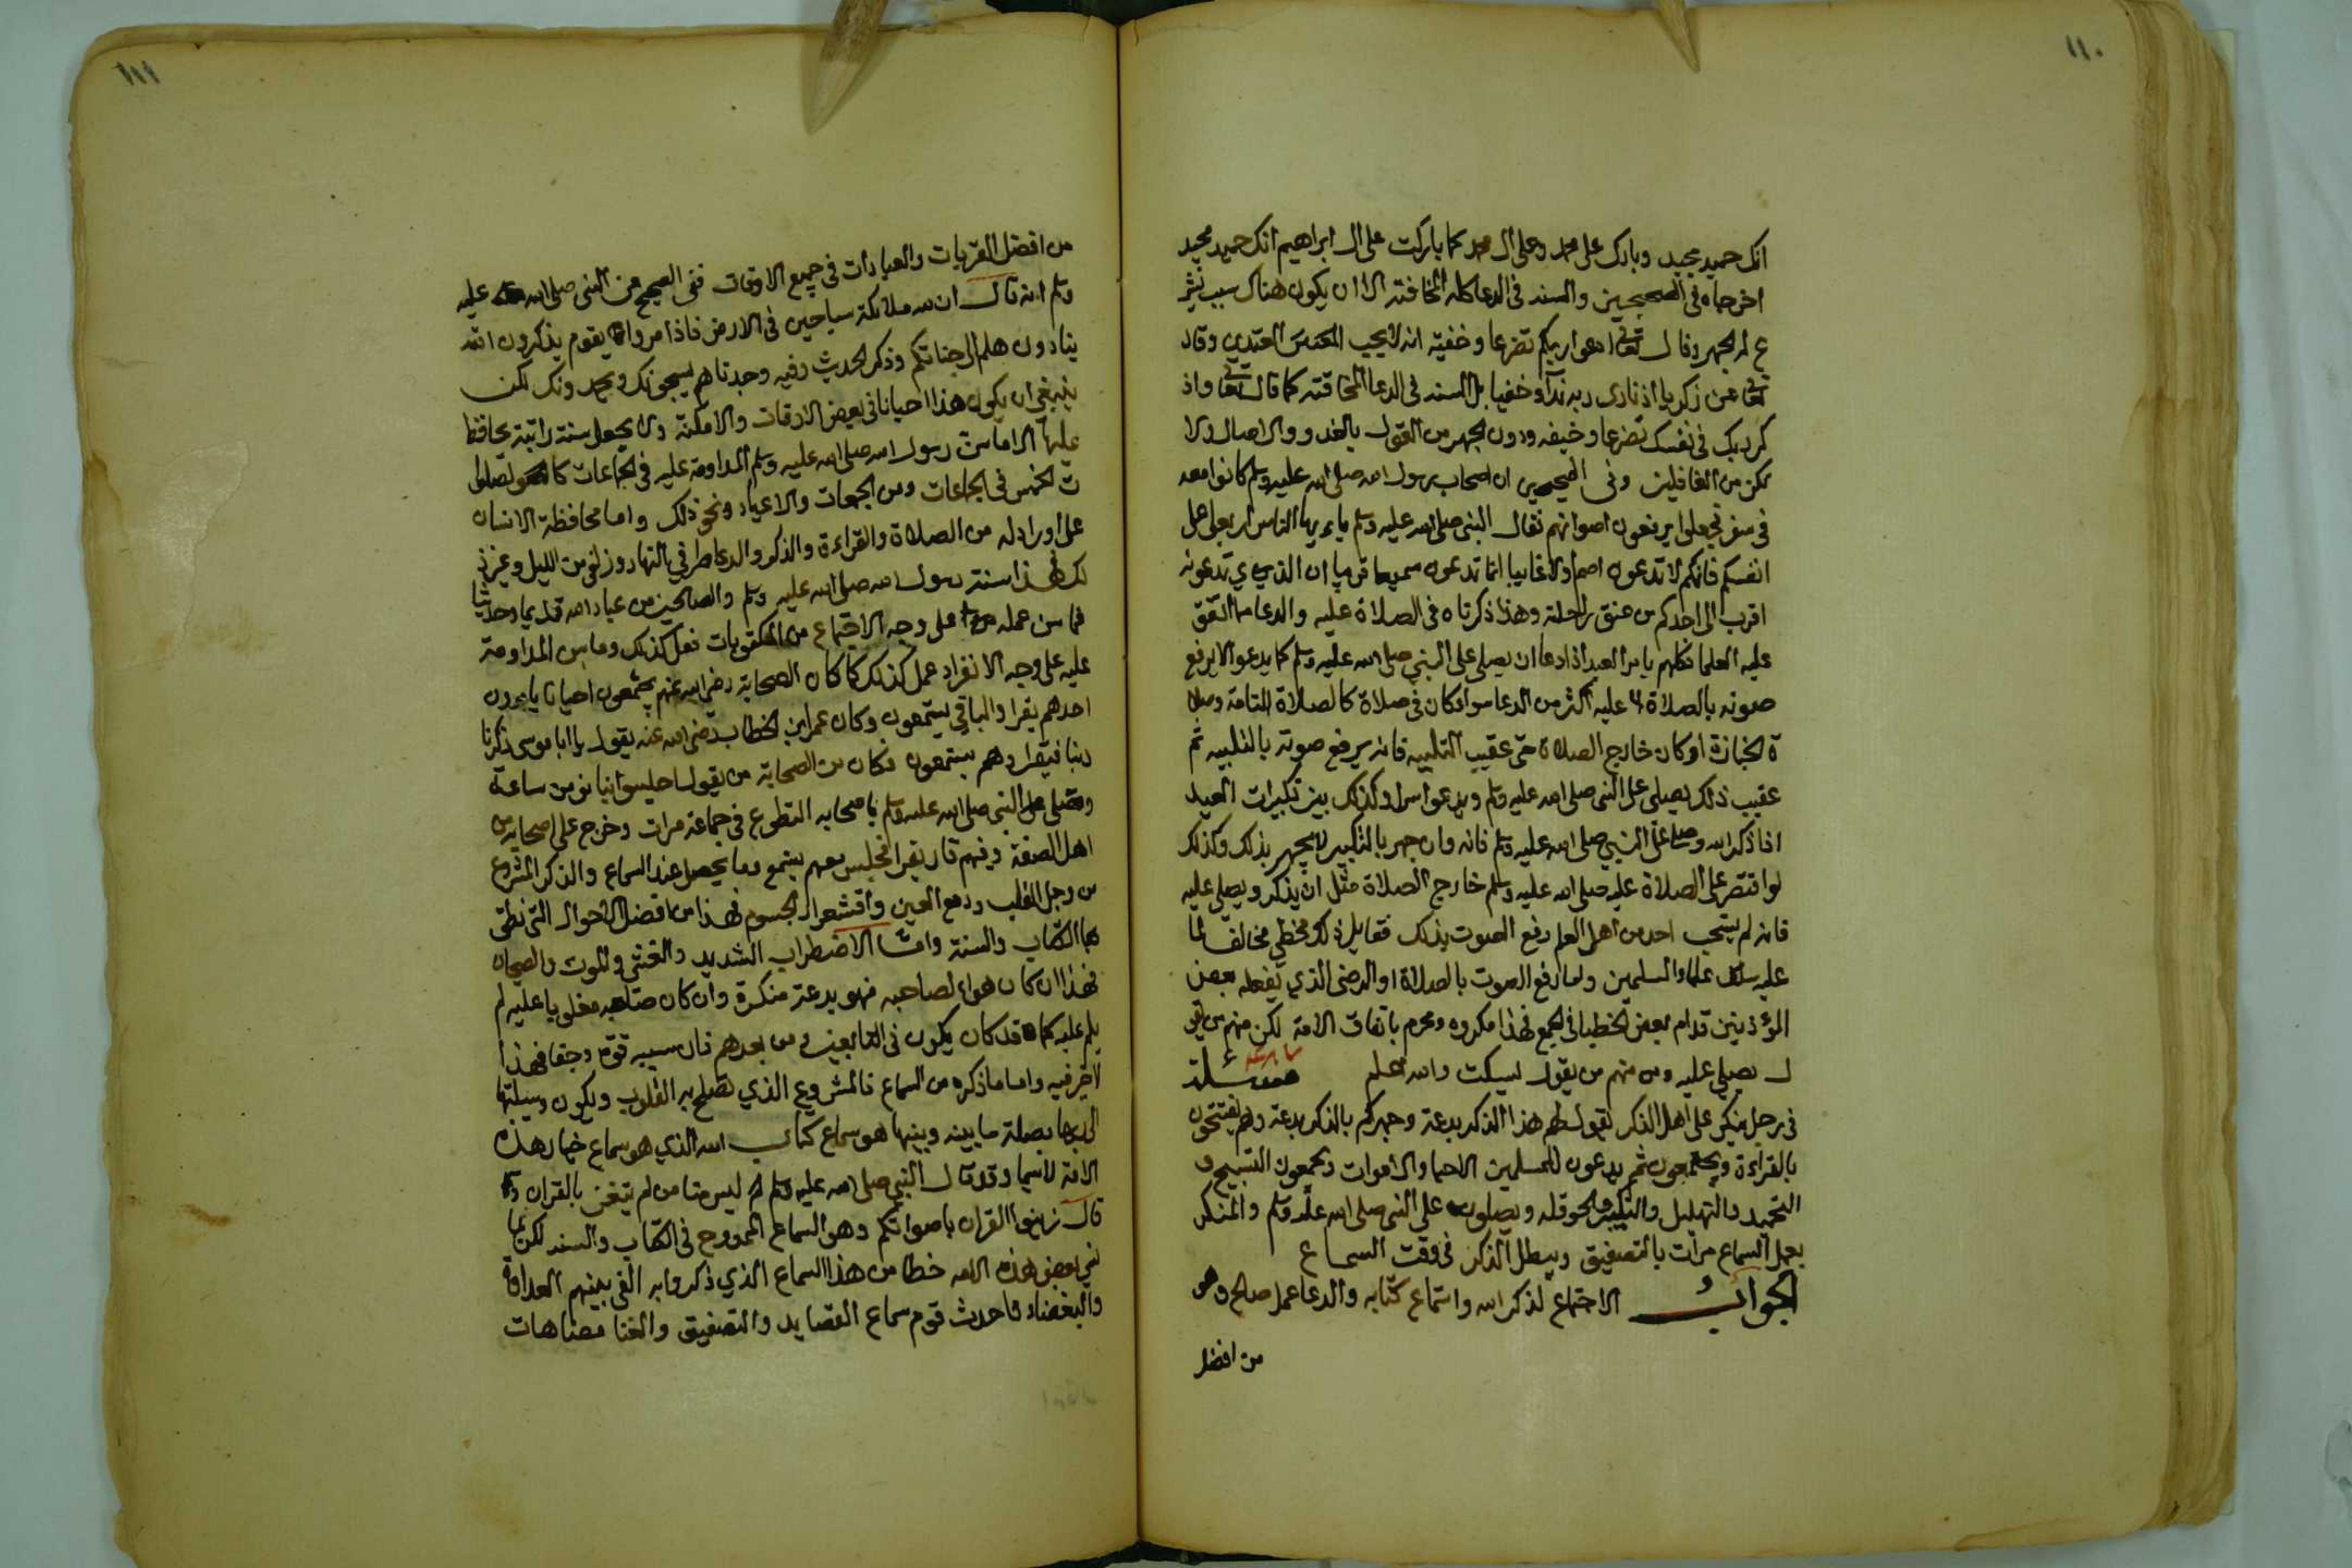 ١١٠
انك حميد مجيد وبارك على محمد وعلى ال محمد كما باركت على ال ابراهيم انك حميد مجيد
اخرجاه في الصحيحين والسنه في الدعا كله المخافته الا ان يكون هناك سبب يشر
ع له الجهر وقال تعالى ادعوا ربكم تضرعا وخفيه انه لا يحب المعتدي وقال
تعالى عن زكريا اذ نادى ربه ندآء خفيا بل السنه في الدعا المخافته كما قال تعالى واذ
كر ربك في نفسك تضرعا وخيفه ودون الجهر من القول بالغدو والاصال ولا
تكن من الغافلين وفي الصحيحين ان اصحاب رسول الله صلى الله عليه وسلم كانوا معه
في سفر فجعلوا يرفعون اصواتهم فقال النبي صلى الله عليه وسلم يا ايها الناس اربعوا على
انفسكم فانكم لا تدعون اصم ولا غايبا انما تدعون سميعا قريبا ان الذي تدعونه
اقرب الى احدكم من عنق راحلته وهذا ذكرناه في الصلاة عليه والدعا مما اتفق
عليه العلما فكلهم يامر العبد اذا دعا ان يصلي على النبي صلى الله عليه وسلم كما يدعوا لا يرفع
صوته بالصلاة عليه اكثر من الدعا سوا كان في صلاة كالصلاة التامة وصلا
ة الجنازة او كان خارج الصلاة حتى عقيب التلبيه فانه يرفع صوته بالتلبيه ثم
عقيب ذلك يصلي على النبي صلى الله عليه وسلم ويدعوا سرا وكذلك بين تكبيرات العيد
اذا ذكر الله وصلى على النبي صلى الله عليه وسلم فانه وان جهر بالتكبير لا يجهر بذلك وكذلك
لو اقتصر على الصلاة عليه صلى الله عليه وسلم خارج الصلاة مثل ان يذكر ويصلي عليه
فانه لم يستحب احد من اهل العلم رفع الصوت بذلك فقايل ذلك مخطي مخالف لما
عليه سلف علماء المسلمين واما رفع الصوت بالصلاة او الرضى الذي يفعله بعض
المؤذنين قدام بعض الخطبا في الجمع فهذا مكروه ومحرم باتفاق الامة لكن منهم من يقو
ل يصلي عليه ومن منهم من يقول يسكت والله اعلم مسئلة
في رجل ينكر على اهل الذكر يقول لهم هذا الذكر بدعة وجهركم بالذكر بدعة وهم يفتتحون
بالقراءة ويختمون ثم يدعون للمسلمين الاحيا والاموات ويجمعون التسبيح و
التحميد والتهليل والتكبير والحوقله ويصلون على النبي صلى الله عليه وسلم والمنكر
يعمل السماع مرات بالتصفيق ويبطل الذكر في وقت السماع
الجواب الاجتماع لذكر الله واستماع كتابه والدعا عمل صالح وهو
من افضل
١١١
من افضل القربات والعبادات في جميع الاوقات ففي الصحيح عن النبي صلى الله عليه
وسلم انه قال ان لله ملائكة سياحين في الارض فاذا مروا بقوم يذكرون الله
ينادون هلم الى حاجتكم وذكر الحديث وفيه وجدناهم يسبحونك ويحمدونك لكن
ينبغي ان يكون هذا احيانا في بعض الاوقات والامكنة ولا يجعل سنة راتبة يحافظ
عليها الا ما سن رسول الله صلى الله عليه وسلم المداومة عليه في الجماعات كالصلوا
ت الخمس في الجماعات ومن الجمعات والاعياد ونحو ذلك واما محافظة الانسان
على اوراد له من الصلاة والقراءة والذكر والدعا طرفي النهار وزلفى من الليل وغير ذ
لك فهذا سنة رسول الله صلى الله عليه وسلم والصالحين من عباد الله قديما وحديثا
فما سن عمله على وجه الاجتماع من المكتوبات فعل كذلك وما سن المداومة
عليه على وجه الانفراد عمل كذلك كما كان الصحابة رضي الله عنهم يجتمعون احيانا يامرون
احدهم يقرا والباقي يستمعون وكان عمر ابن الخطاب رضي الله عنه يقول يا ابا موسى ذكرنا
ربنا فيقرا وهم يستمعون وكان من الصحابة من يقول اجلسوا بنا نومن ساعة
وصلى النبي صلى الله عليه وسلم باصحابه التطوع في جماعة مرات وخرج على اصحابه من
اهل الصفة وفيهم قار يقرا فجلس معهم يستمع وما يحصل عند السماع والذكر المشروع
من وجل القلب ودمع العين واقشعرار الجسوم فهذا من افضل الاحوال التي نطق
بها الكتاب والسنة وامّا الاضطراب الشديد والغشي والموت والصيحات
فهذا ان كان هواء لصاحبه فهو بدعة منكرة وان كان صاحبه مغلوبا عليه لم
يلم عليه كما قد كان يكون في التابعين ومن بعدهم فان سببه قوة وجفا فهذا
لا خير فيه واما ما ذكره من السماع فالمشروع الذي تصلح به القلوب ويكون وسيلتها
الى ربها بصلة ما بينه وبينها هو سماع كتاب الله الذي هو سماع خيار هذه
الامة لا سيما وقد قال النبي صلى الله عليه وسلم ليس منا من لم يتغن بالقران و
قال زينوا القران باصواتكم وهو السماع الممدوح في الكتاب والسنه لكن لما
نسي بعض هذه الامه حظا من هذا السماع الذي ذكروا به القى بينهم العداوة
والبغضاء فاحدث قوم سماع القصايد والتصفيق والغنا مضاهات